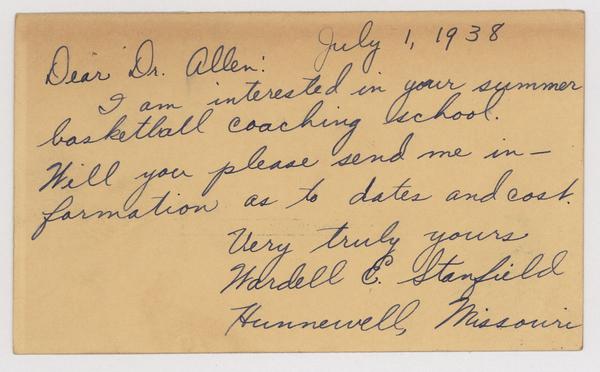 July 1, 1938
Dear Dr. Allen:
I am interested in your summer
basketball coaching school.
Will you please send me in-
formation as to dates and cost.
Very truly yours
Wardell E. Stanfield
Hunnewell, Missouri